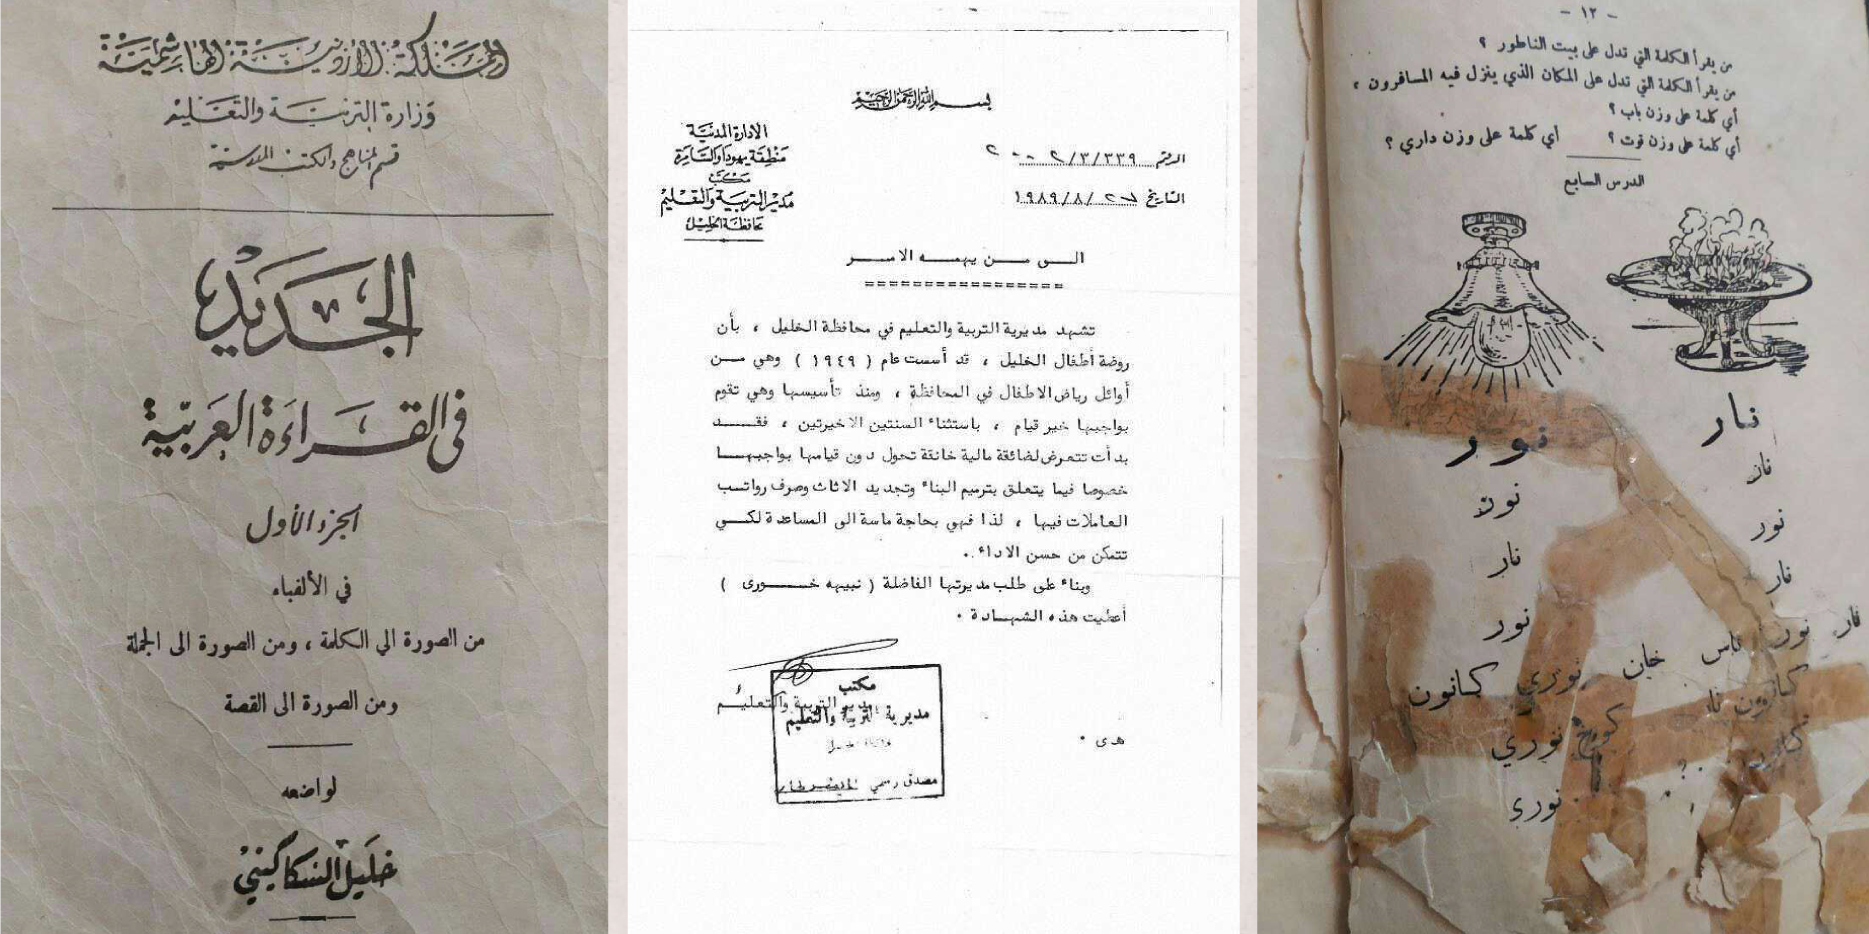 المملكة الأردنية الهاشمية
وزارة التربية والتعليم
قسم المناهج والكتب المدرسية
الجديد
في القراءة العربية
الجزء الأول
في الألفباء
من الصورة الى الكلمة ، ومن الصورة الى الجملة
ومن الصورة الى القصة
لواضعه
خليل السكاكيني
بسم الله الرحمن الرحيم
الادارة المدنية
منطقة يهودا والسامرة
مكتب
مدير التربية والتعليم
محافظة الخليل
الرقم ٢/٣/٣٣٩
التاريخ ٢٧/٨/١٩٨٩
الى من يهمه الامر
================
تشهد مديرية التربية والتعليم في محافظة الخليل ، بأن
روضة أطفال الخليل ، قد أسست عام ( ١٩٤٩ ) وهي من
أوائل رياض الاطفال في المحافظة ، ومنذ تأسيسها وهي تقوم
بواجبها خير قيام ، باستثناء السنتين الاخيرتين ، فقد
بدأت تتعرض لضائقة مالية خانقة تحول دون قيامها بواجبها
خصوصا فيما يتعلق بترميم البناء وتجديد الاثاث وصرف رواتب
العاملات فيها ، لذا فهي بحاجة ماسة الى المساعدة لكي
تتمكن من حسن الاداء .
وبناء على طلب مديرتها الفاضلة ( نبيهه خوري )
أعطيت هذه الشهادة .
مدير التربية والتعليم
مكتب
مديرية التربية والتعليم
مصدق رسمي
هدى .
- ١٢ -
من يقرأ الكلمة التي تدل على بيت الناطور ؟
من يقرأ الكلمة التي تدل على المكان الذي ينزل فيه المسافرون ،
أي كلمة على وزن باب ؟
أي كلمة على وزن قوت ؟ أي كلمة على وزن داري ؟
الدرس السابع
نار
نور
نار
نور
نور
نار
نار
نور
نار نور ناس خان نوري كانون
كانون نار
نوري
نوري